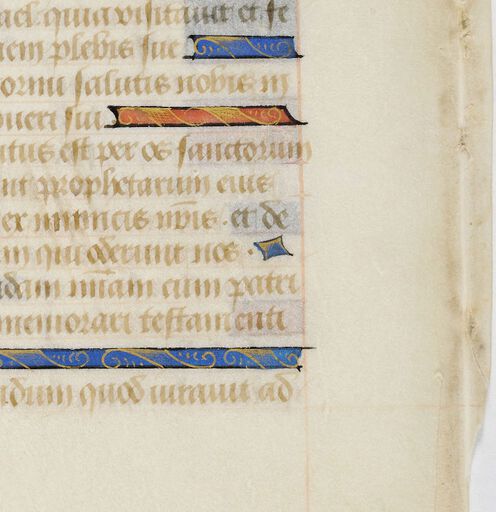 ael quia visitavit et fe
nem plebis sue
ornu salutis nobis in
pueri sui
utus est per os sanctorum
unt prophetarum eius
ex inimicis nris · et de
um qui oderunt nos ·
ndam miam cum patri
memorari testamenti
ndum quod iuravit ad